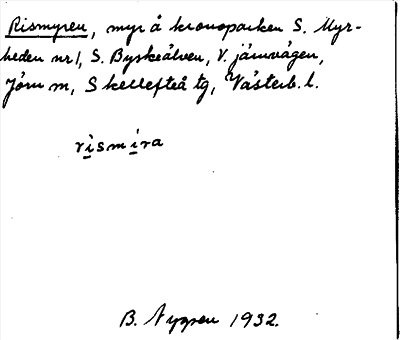 Rismyren, myr å kronoparken S. Myr-
heden nr 1, S. Byskeälven, V. järnvägen,
Jörn sn, Skellefteå tg, Västerb. l.
rismira
B. Nygren 1932.